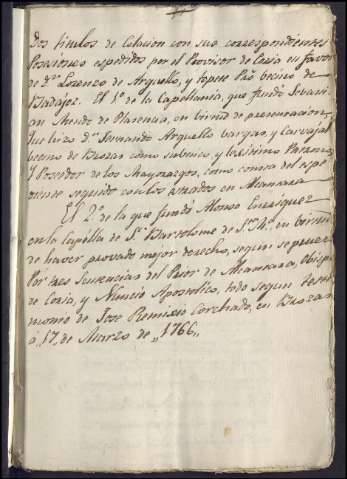 Dos titulos de Colacion con sus correspondientes
Posesiones expedidos por el Provisor de Coria en favor
de Dn. Lorenzo de Arguello, y topete Pbro vecino de
Badajoz. El 1º de la Capellania, que fundó Sevas
tian Mendo de Plasencia, en virtud de presentacion,
que hizo Dn. Fernando Arguello vargas, y Carvajal
vecino de Brozas como subcesor, y lexitimo Patrono,
y Poseedor de los Mayorazgos, como consta del espe
diente seguido con los en Alcantara
El 2º de la que fundó Alonso Enrriquez
en la Capilla de Sn. Bartolome de Sta. Mª. en virtud
de haver provado mejor derecho, segun se prueva
Por tres sentencias del Prior de Alcantara, Obispo
de Coria, y Nuncio Apostolico, todo segun testi
monio de Jose Remixio Corchado, en Brozas
á "17" de Marzo de "1766"